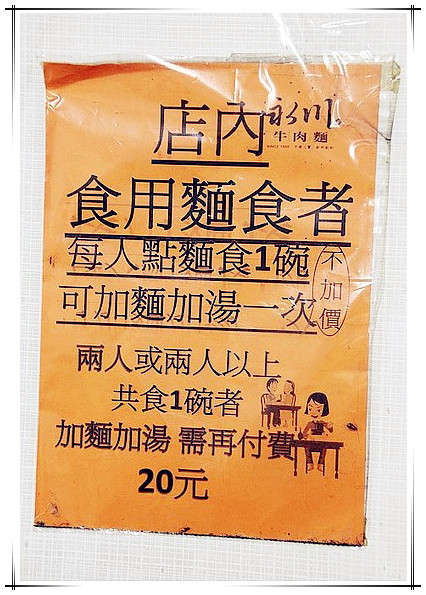 店內
永川
牛肉麵
食用麵食者
每人點麵食1碗
可加麵加湯一次
不加價
兩人或兩人以上
共食1碗者
加麵加湯 需再付費
20元